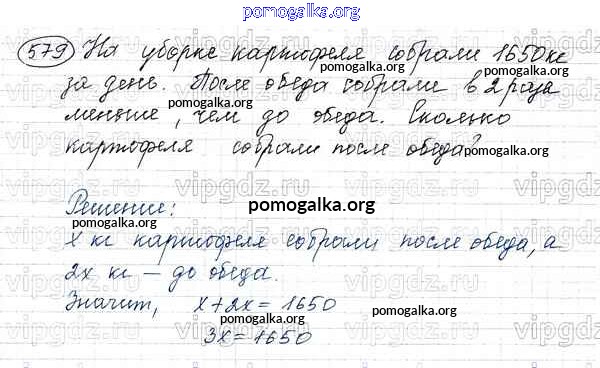 pomogalka.org
579 На уборке картофеля собрали 1650 кг
pomogalka.org
за день. После обеда собрали в 2 раза
pomogalka.org pomogalka.org
меньше, чем до обеда. Сколько
pomogalka.org
картофеля собрали после обеда?
pomogalka.org
vipgdz.ru vipgdz.ru vipgdz.ru
Решение:
pomogalka.org
х кг картофеля собрали после обеда, а
pomogalka.org
2х кг — до обеда.
vipgdz.ru vipgdz.ru vipgdz.ru
Значит, х+2х=1650
pomogalka.org
3х=1650
pomogalka.org